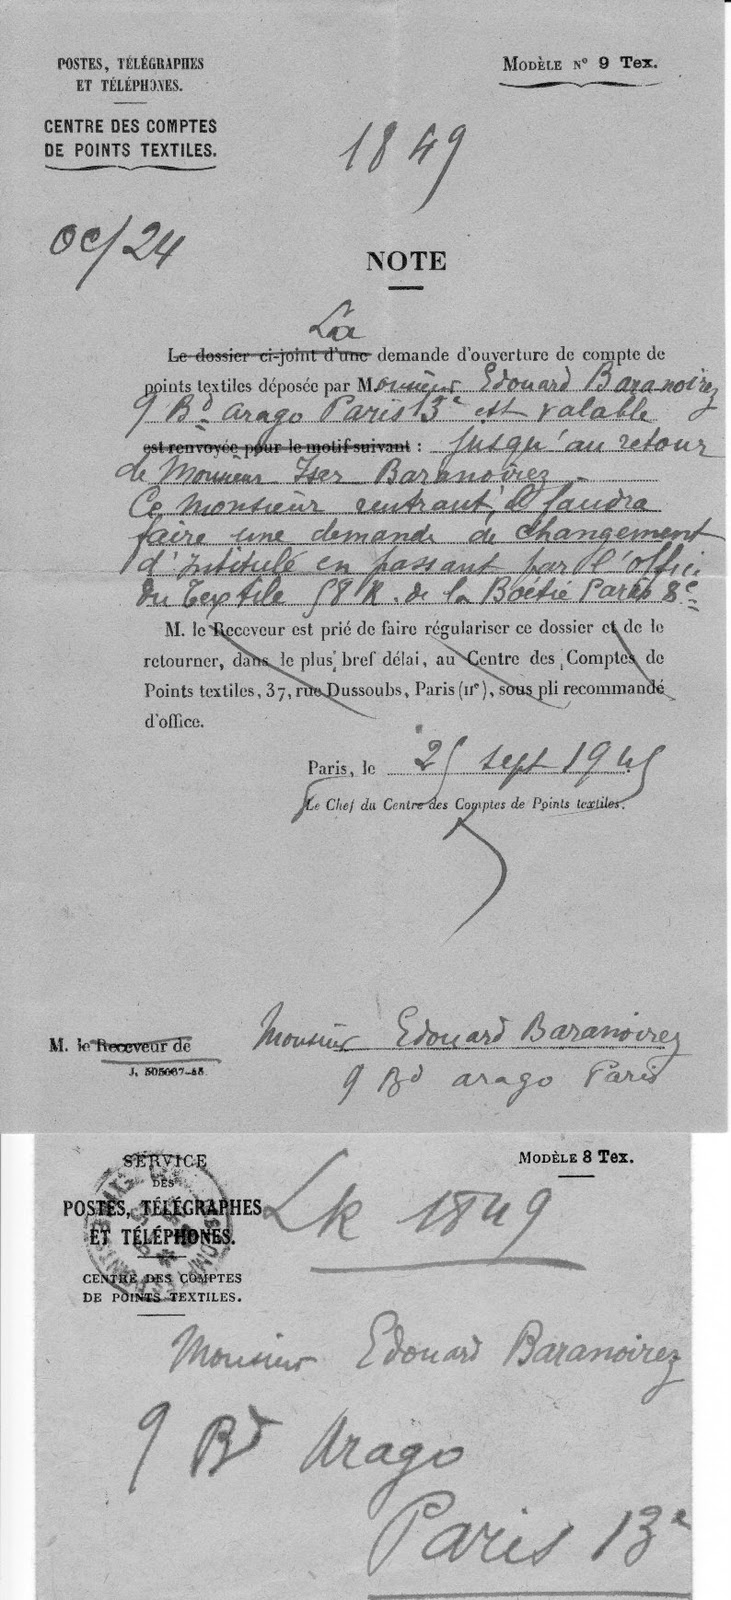 POSTES, TÉLÉGRAPHES
ET TÉLÉPHONES.
CENTRE DES COMPTES
DE POINTS TEXTILES.
MODÈLE N° 9 Tex.
1849
OC/24
NOTE
La
Le dossier ci-joint d'une demande d'ouverture de compte de
points textiles déposée par Monsieur Edouard Baranoirez
9 Bd Arago Paris 13e est valable
est renvoyée pour le motif suivant : jusqu'au retour
de Monsieur Iser Baranoirez
Ce monsieur rentrant, il faudra
faire une demande de changement
d'intitulé en passant par l'office
du Textile 58 R. de la Boétie Paris 8e
M. le Receveur est prié de faire régulariser ce dossier et de le
retourner, dans le plus bref délai, au Centre des Comptes de
Points textiles, 37, rue Dussoubs, Paris (IIe), sous pli recommandé
d'office.
Paris, le 25 sept 1945
Le Chef du Centre des Comptes de Points textiles.
M. le Receveur de Monsieur Edouard Baranoirez
J. 505067-45
9 Bd Arago Paris
SERVICE
DES
POSTES, TÉLÉGRAPHES
ET TÉLÉPHONES.
CENTRE DES COMPTES
DE POINTS TEXTILES.
MODÈLE 8 Tex.
Lk 1849
Monsieur Edouard Baranoirez
9 Bd Arago
Paris 13e